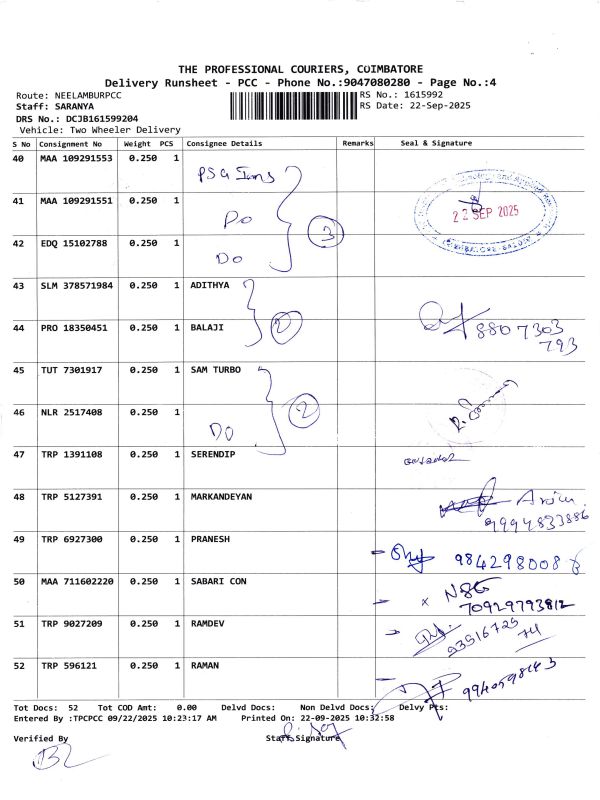 THE PROFESSIONAL COURIERS, COIMBATORE
Delivery Runsheet - PCC - Phone No.:9047080280 - Page No.:4
Route: NEELAMBURPCC RS No.: 1615992
Staff: SARANYA RS Date: 22-Sep-2025
DRS No.: DCJB161599204
Vehicle: Two Wheeler Delivery
S No Consignment No Weight PCS Consignee Details Remarks Seal & Signature
40 MAA 109291553 0.250 1 PSG
41 MAA 109291551 0.250 1 Do 22 SEP 2025
42 EDQ 15102788 0.250 1 Do 3
43 SLM 378571984 0.250 1 ADITHYA
44 PRO 18350451 0.250 1 BALAJI 2 8807303
793
45 TUT 7301917 0.250 1 SAM TURBO
46 NLR 2517408 0.250 1 DO 2
47 TRP 1391108 0.250 1 SERENDIP
48 TRP 5127391 0.250 1 MARKANDEYAN
9994833886
49 TRP 6927300 0.250 1 PRANESH 984298008
50 MAA 711602220 0.250 1 SABARI CON
51 TRP 9027209 0.250 1 RAMDEV 93516725
74
52 TRP 596121 0.250 1 RAMAN
Tot Docs: 52 Tot COD Amt: 0.00 Delvd Docs: Non Delvd Docs: Delvy Pts:
Entered By :TPCPCC 09/22/2025 10:23:17 AM Printed On: 22-09-2025 10:32:58
Verified By Staff Signature